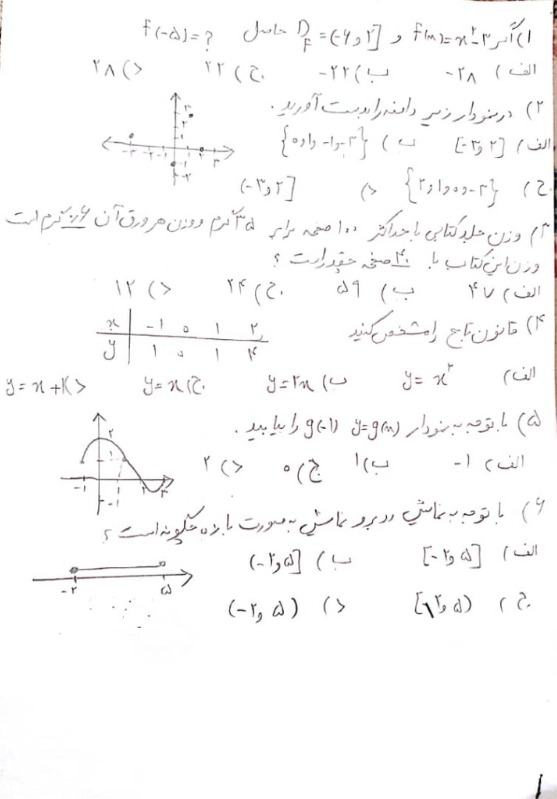 ۱) اگر f(x)=x²-۳ و D_f=(-۶,۲] حاصل f(-۵)=?
الف) -۲۸ ب) -۲۲ ج) ۲۲ د) ۲۸
۲) در نمودار زیر دامنه را بدست آورید.
الف) [-۳,۲] ب)
ج) د) (-۳,۲]
۳) وزن جلد کتابی با حداکثر ۱۰۰ صفحه برابر ۳۵ گرم و وزن هر ورق آن ۰/۶ گرم است
وزن این کتاب با ۴۰ صفحه چقدر است؟
الف) ۴۷ ب) ۵۹ ج) ۲۴ د) ۱۲
۴) قانون تابع را مشخص کنید
x -۱ ۰ ۱ ۲
y ۱ ۰ ۱ ۴
الف) y=x² ب) y=۲x ج) y=x د) y=x+K
۵) با توجه به نمودار y=g(x) g(-۱) را بیابید.
الف) -۱ ب) ۱ ج) ۰ د) ۲
۶) با توجه به نمایش روبرو نمایش به صورت بازه چگونه است؟
الف) [-۲,۵] ب) (-۲,۵]
ج) [-۲,۵) د) (-۲,۵)
-۲ ۵
۱